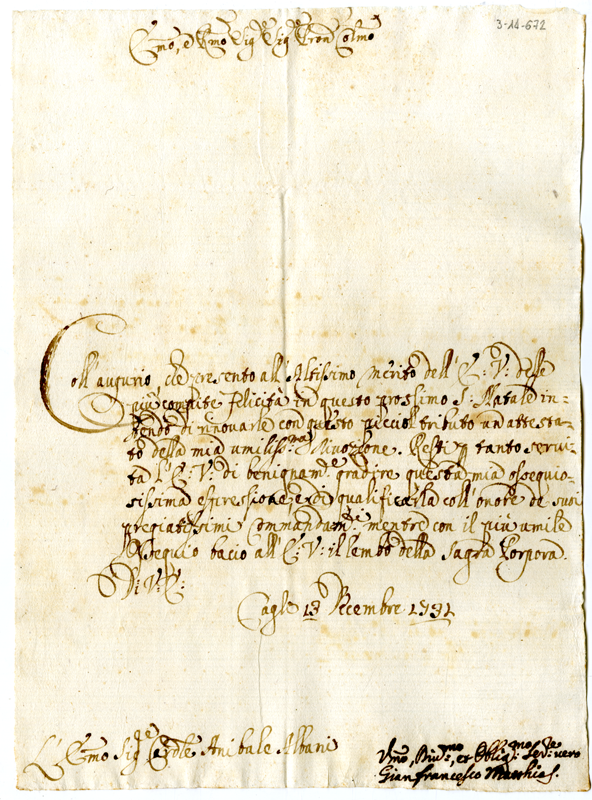 3-14-672
Emo, e Rmo Sig.re Sig.re Pron Colmo
Coll'augurio, che presento all'Altissimo Merito dell'E: V: delle
più compite felicità in questo prossimo S. Natale in=
tendo di rinovarle con questo picciol tributo un attesta=
to della mia umiliss.ma Divozione. Resti p tanto servi=
ta l'E: V: di benignam.e gradire questa mia ossequio=
sissima espressione, e di qualificarla coll'onore de suoi
pregiatissimi Commandam.ti mentre con il più umile
Ossequio bacio all'E: V: il lembo della Sagra Porpora.
Di V: E:
Cagli 13 Decembre 1731
L'Emo Sig.re Card.le Anibale Albani
Umo, Div.mo, et Oblig.mo Ser.re vero
Gianfrancesco